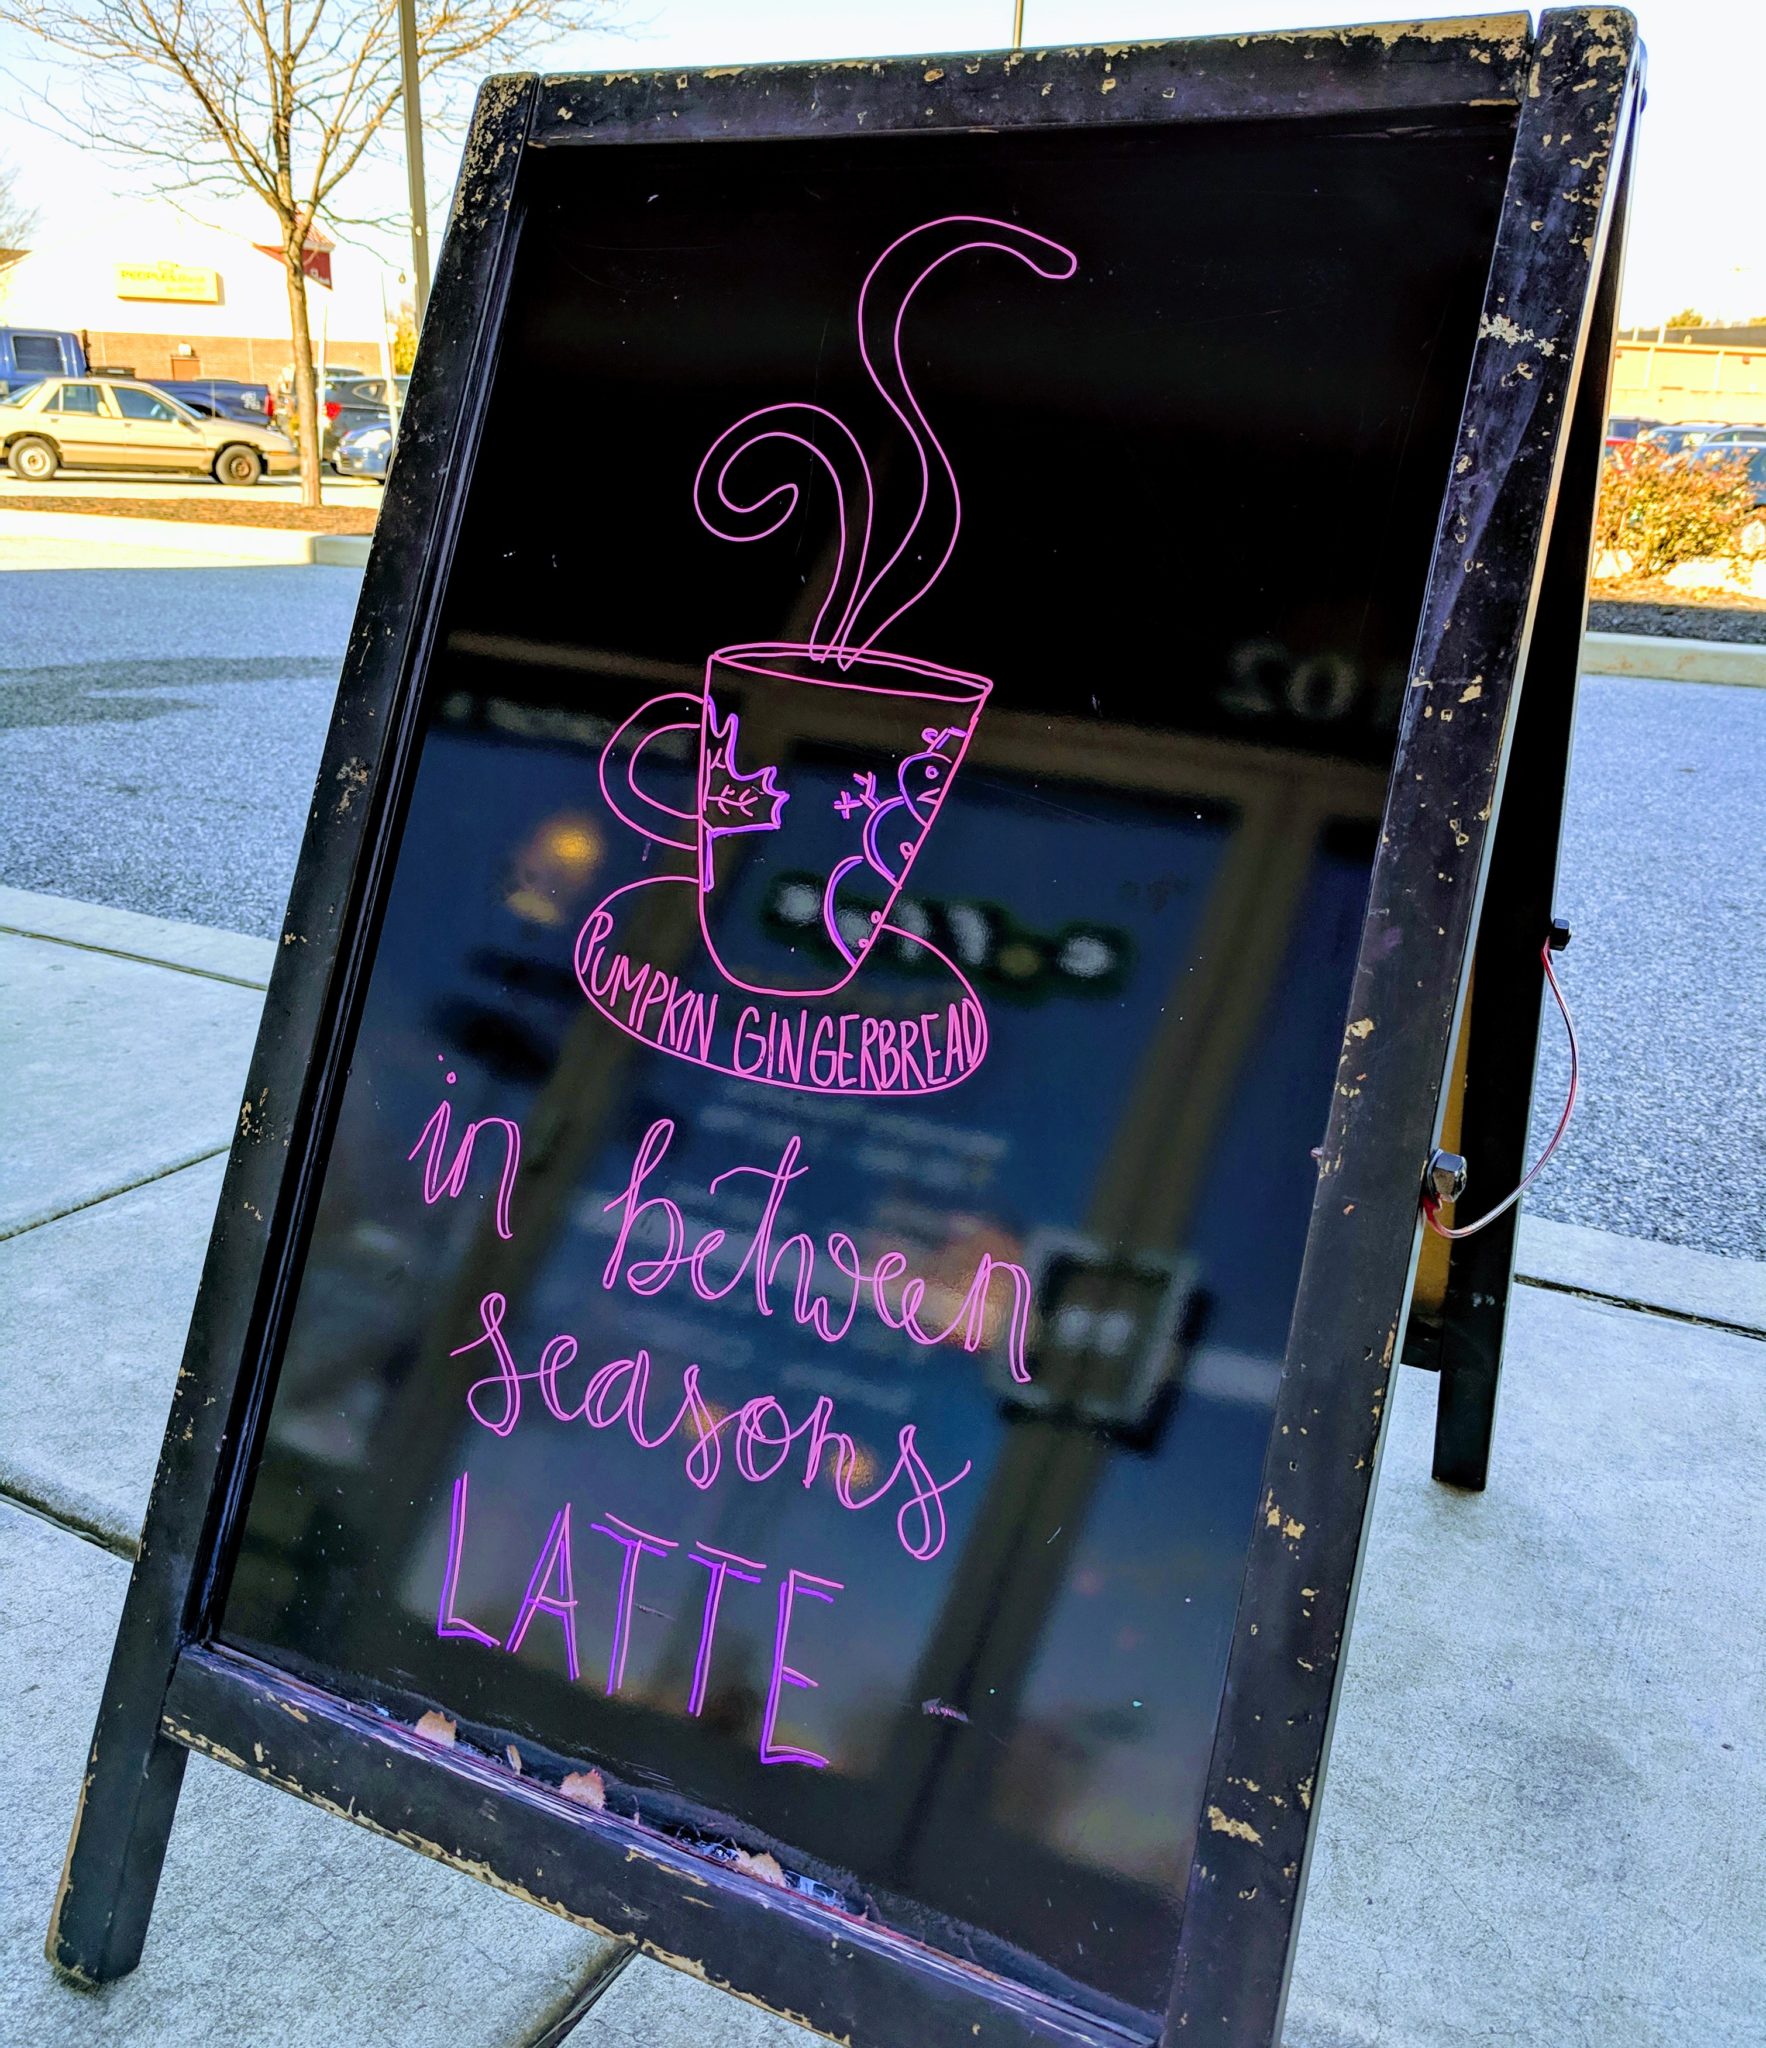 PUMPKIN GINGERBREAD
in between
seasons
LATTE